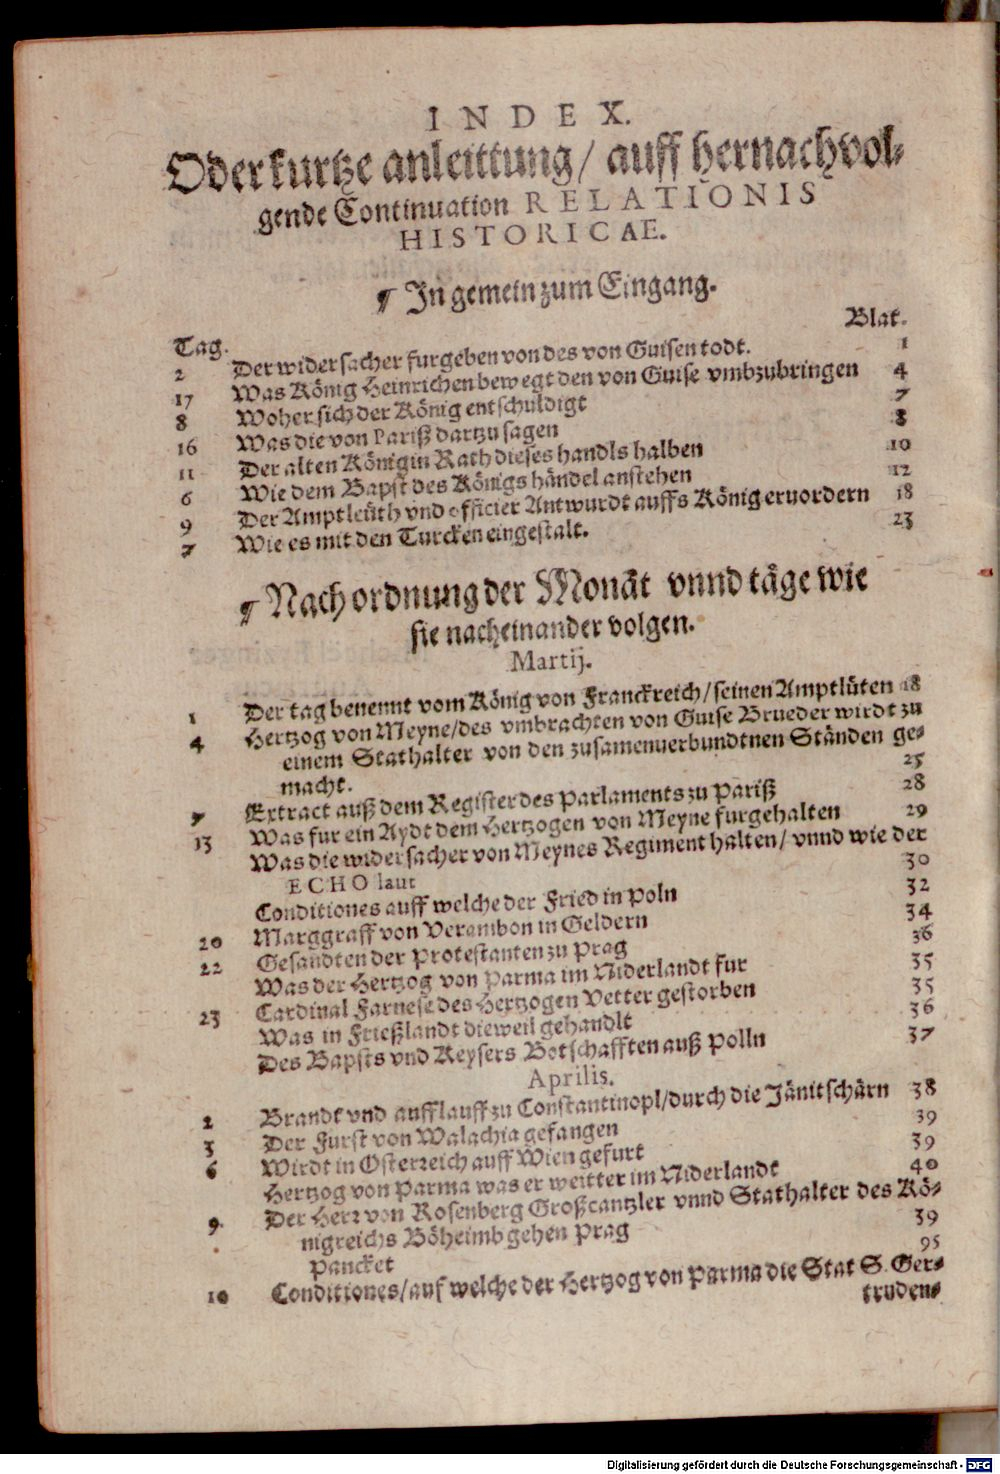 INDEX.
Oder kurtze anleittung/ auff hernachvol-
gende Continuation RELATIONIS
HISTORICAE.
¶ In gemein zum Eingang.
Tag. Blat.
2 Der widersacher furgeben von des von Guisen todt. 1
17 Was König Heinrichen bewegt den von Guise vmbzubringen 4
8 Woher sich der König entschuldigt 7
16 Was die von Pariß dartzu sagen 8
11 Der alten Königin Rath dieses handls halben 10
6 Wie dem Bapst des Königs händel anstehen 12
9 Der Amptleüth vnd officier Antwurdt auffs König eruordern 18
7 Wie es mit den Turcken eingestalt. 23
¶ Nach ordnung der Monät vnnd täge wie
sie nacheinander volgen.
Martij.
1 Der tag benennt vom König von Franckreich/ seinen Amptlüten 18
4 Hertzog von Meyne/des vmbrachten von Guise Brueder wirdt zu
einem Stathalter von den zusamenuerbundtnen Ständen ge-
macht. 25
7 Extract auß dem Register des Parlaments zu Pariß 28
13 Was fur ein Aydt dem Hertzogen von Meyne furgehalten 29
Was die widersacher von Meynes Regiment halten/ vnnd wie der
ECHO laut 30
Conditiones auff welche der Fried in Poln 32
20 Marggraff von Verambon in Geldern 34
22 Gesandten der Protestanten zu Prag 36
Was der Hertzog von Parma im Niderlandt fur 35
23 Cardinal Farnese des Hertzogen Vetter gestorben 35
Was in Frießlandt dieweil gehandlt 36
Des Bapsts vnd Keysers Botschafften auß Polln 37
Aprilis.
2 Brandt vnd aufflauff zu Constantinopl/durch die Jänitschärn 38
3 Der Furst von Walachia gefangen 39
6 Wirdt in Osterreich auff Wien gefurt 39
Hertzog von Parma was er weitter im Niderlandt 40
9 Der Herr von Rosenberg Großcantzler vnnd Stathalter des Kö-
nigreichs Böheimb gehen Prag 39
Pancket 95
10 Conditiones/auf welche der Hertzog von Parma die Stat S. Ger-
truden-
Digitalisierung gefördert durch die Deutsche Forschungsgemeinschaft - DFG